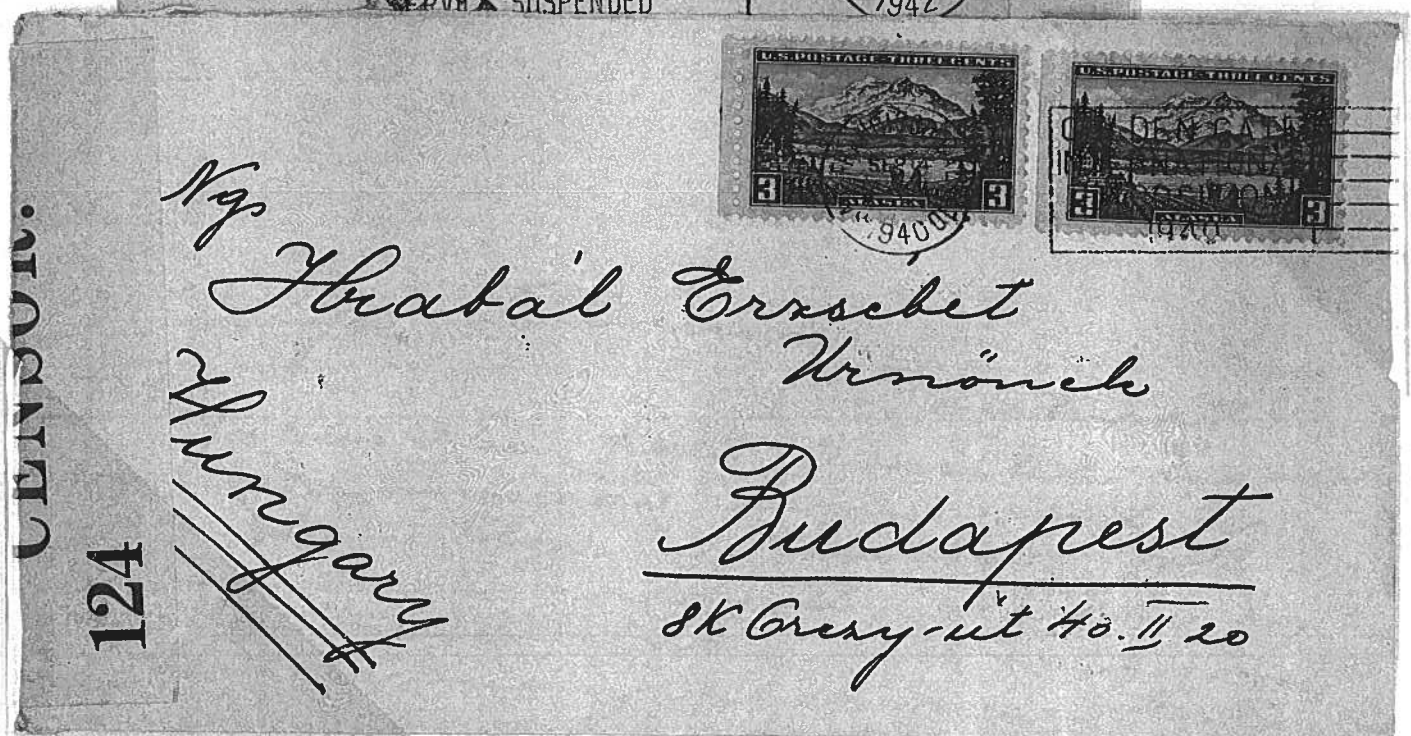 SUSPENDED
1942
U.S. POSTAGE THREE CENTS
3 ALASKA 3
U.S. POSTAGE THREE CENTS
3 ALASKA 3
1940
GOLDEN GATE
INTERNATIONAL
EXPOSITION
1940
Ngs
Hrabál Erzsébet
Urnönek
Hungary
Budapest
8K Orczy-út 40. II 20
CENSOR.
124